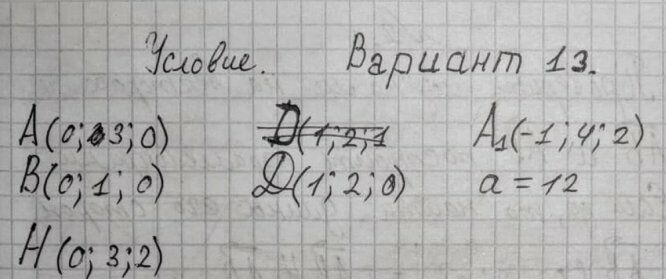 Условие. Вариант 13.
A(0; 3; 0) D(1; 2; 1 A₁(-1; 4; 2)
B(0; 1; 0) D(1; 2; 0) a = 12
H(0; 3; 2)